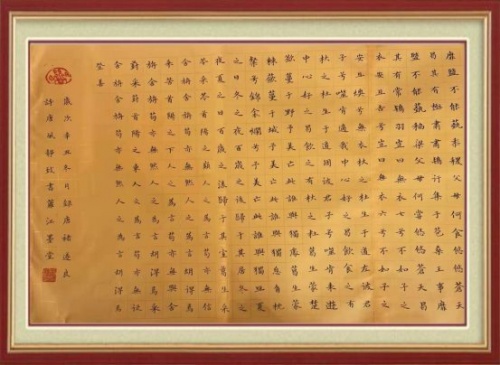 靡盬不能蓺稷黍父母何食悠悠蒼天
曷其有極肅肅鴇行集于苞桑王事靡
盬不能蓺稻粱父母何嘗悠悠蒼天曷
其有常鴇羽豈曰無衣七兮不如子之
衣安且吉兮豈曰無衣六兮不如子之衣
安且燠兮無衣有杕之杜生于道左彼君
子兮噬肯適我中心好之曷飲食之有
杕之杜生于道周彼君子兮噬肯來遊
中心好之曷飲食之有杕之杜葛生蒙楚
蘞蔓于野予美亡此誰與獨處葛生蒙
棘蘞蔓于域予美亡此誰與獨息角枕
粲兮錦衾爛兮予美亡此誰與獨旦夏
之日冬之夜百歲之後歸于其居冬之
夜夏之日百歲之後歸于其室葛生采
苓采苓首陽之巔人之為言苟亦無信
舍旃舍旃苟亦無然人之為言胡得焉采
苦采苦首陽之下人之為言苟亦無與舍
旃舍旃苟亦無然人之為言胡得焉采
葑采葑首陽之東人之為言苟亦無從
舍旃舍旃苟亦無然人之為言胡得焉
歲次辛丑冬月録唐褚遂良
詩唐風部書江墨堂